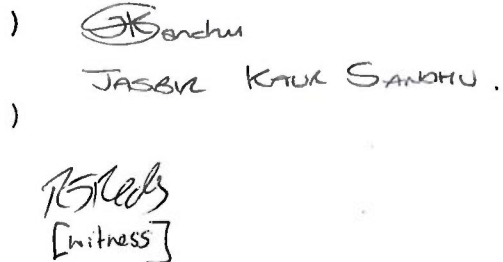 )
JKSandhu
JASBIR KAUR SANDHU.
)
[witness]